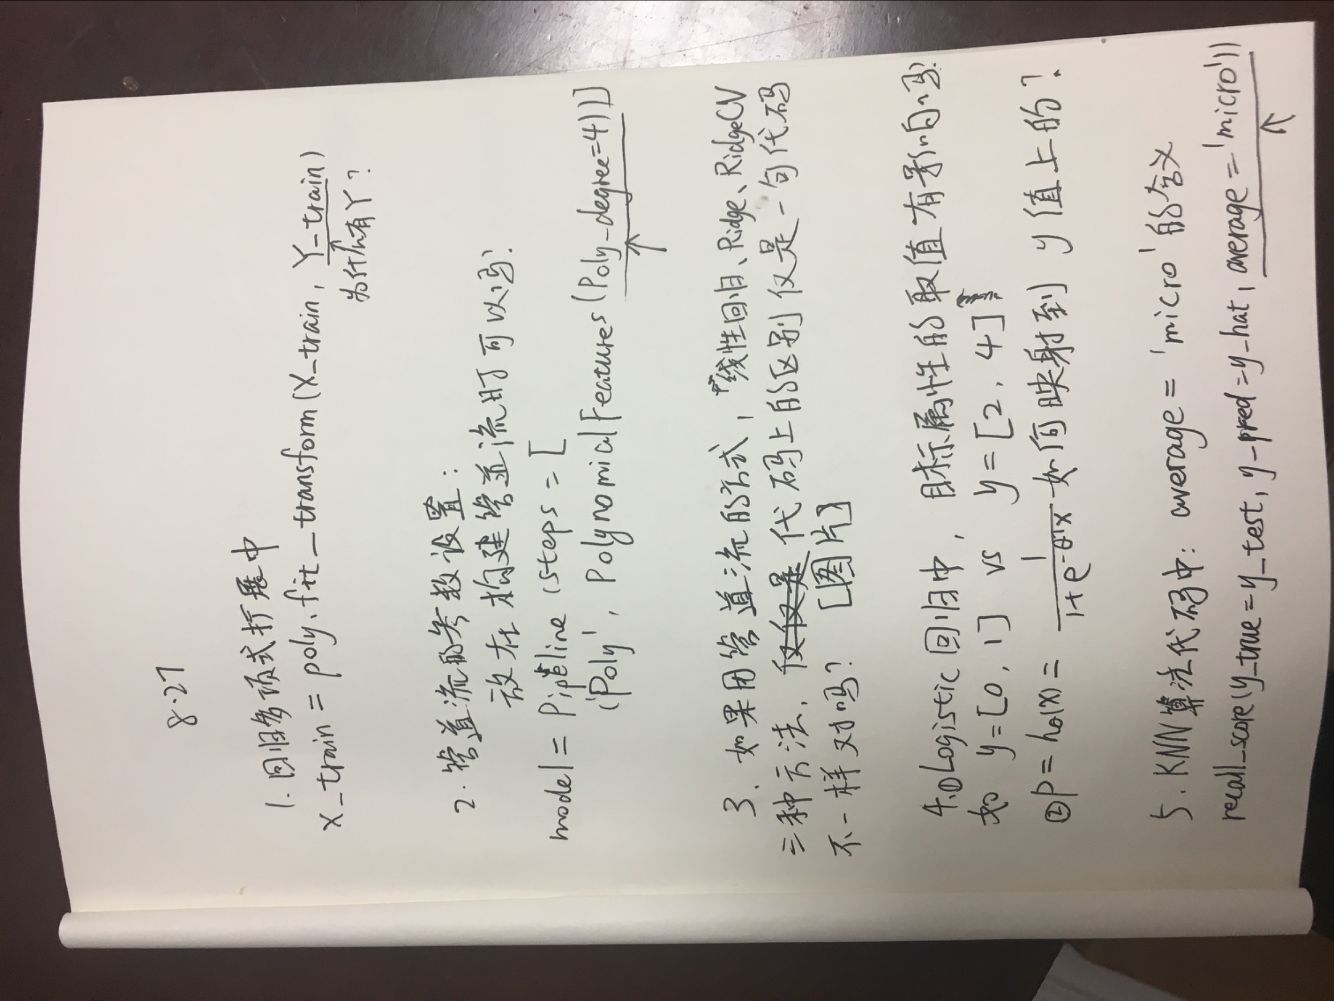 8.27
1. 回归多项式扩展中
X_train = poly.fit_transform(X_train, Y_train)
为什么有Y?
2. 管道流的参数设置:
放在构建管道流时可以吗?
model = Pipeline (steps = [
('Poly', PolynomialFeatures (Poly_degree=4))]
3. 如果用管道流的方式, 线性回归、Ridge、RidgeCV
三种方法, 仅仅是 代码上的区别仅是一句代码
不一样对吗? [图片]
4.① Logistic 回归中, 目标属性的取值有影响吗?
如 y=[0,1] vs y=[2,4]
② P = hθ(x) = 1/1+e^-θ'x 如何映射到 y 值上的?
5. KNN算法代码中: average = 'micro' 的含义
recall_score(y_true=y_test, y_pred=y_hat, average='micro'))